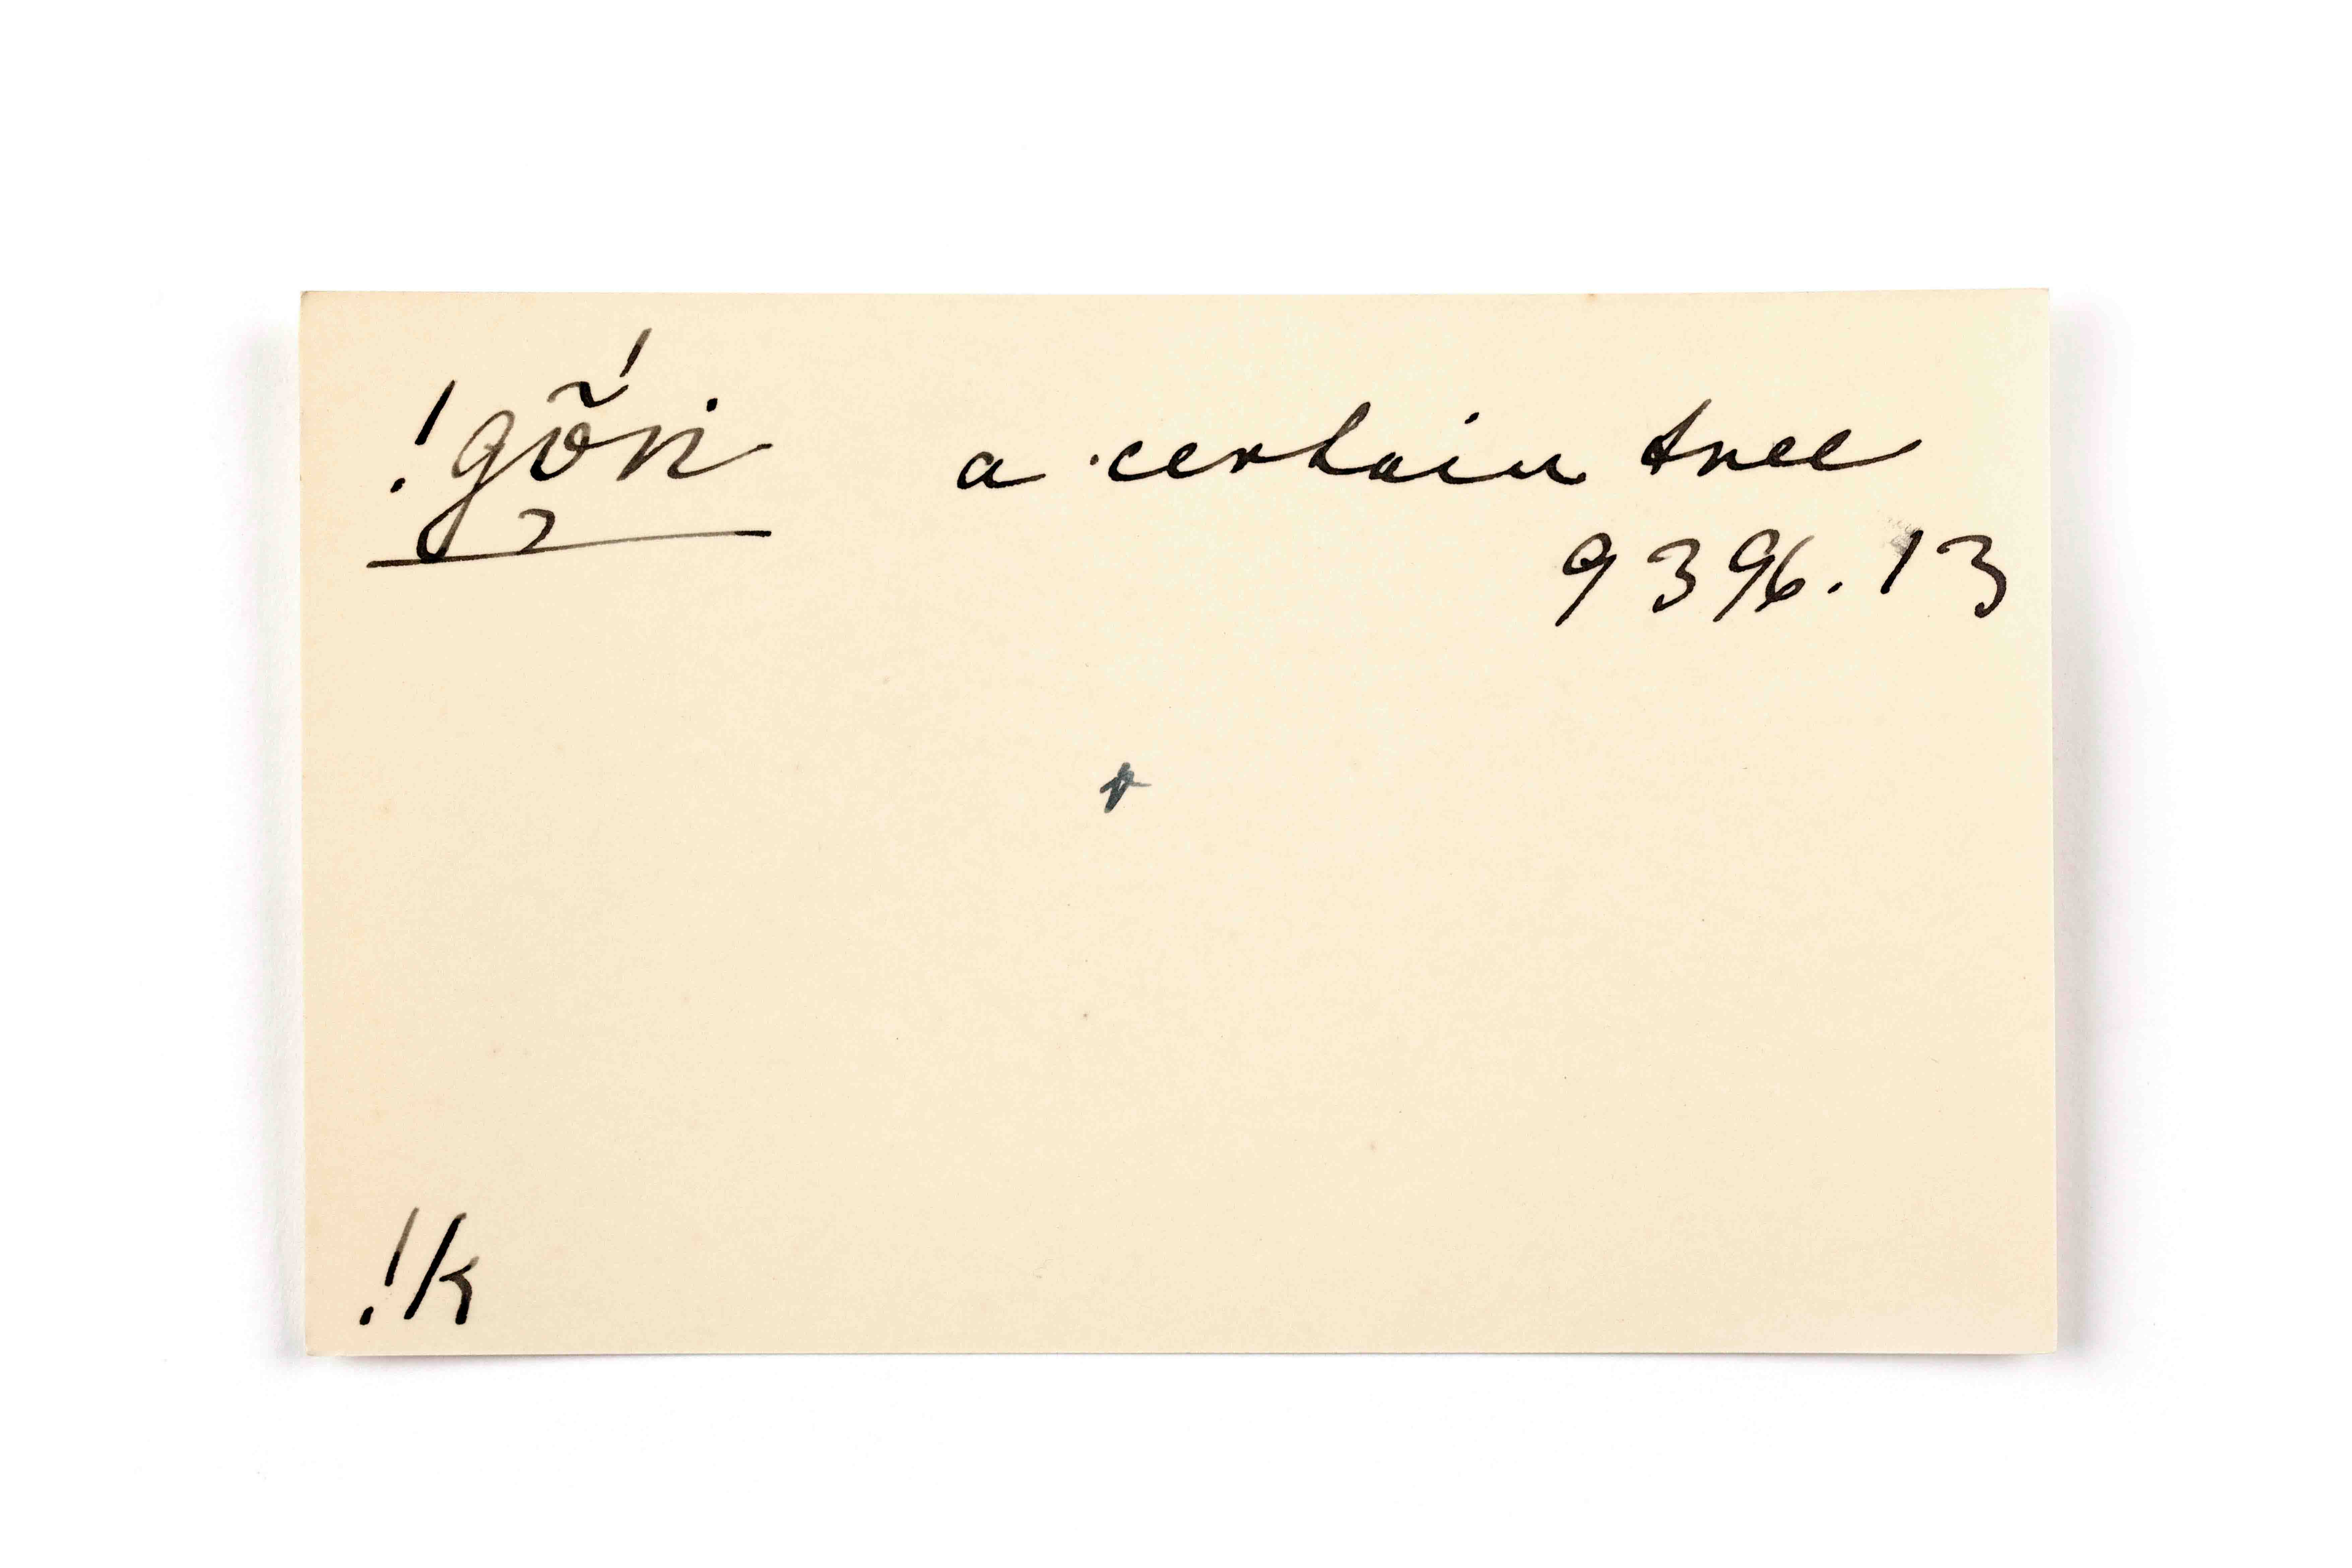 !gṍ̗ni a certain tree
9396.13
r
!k